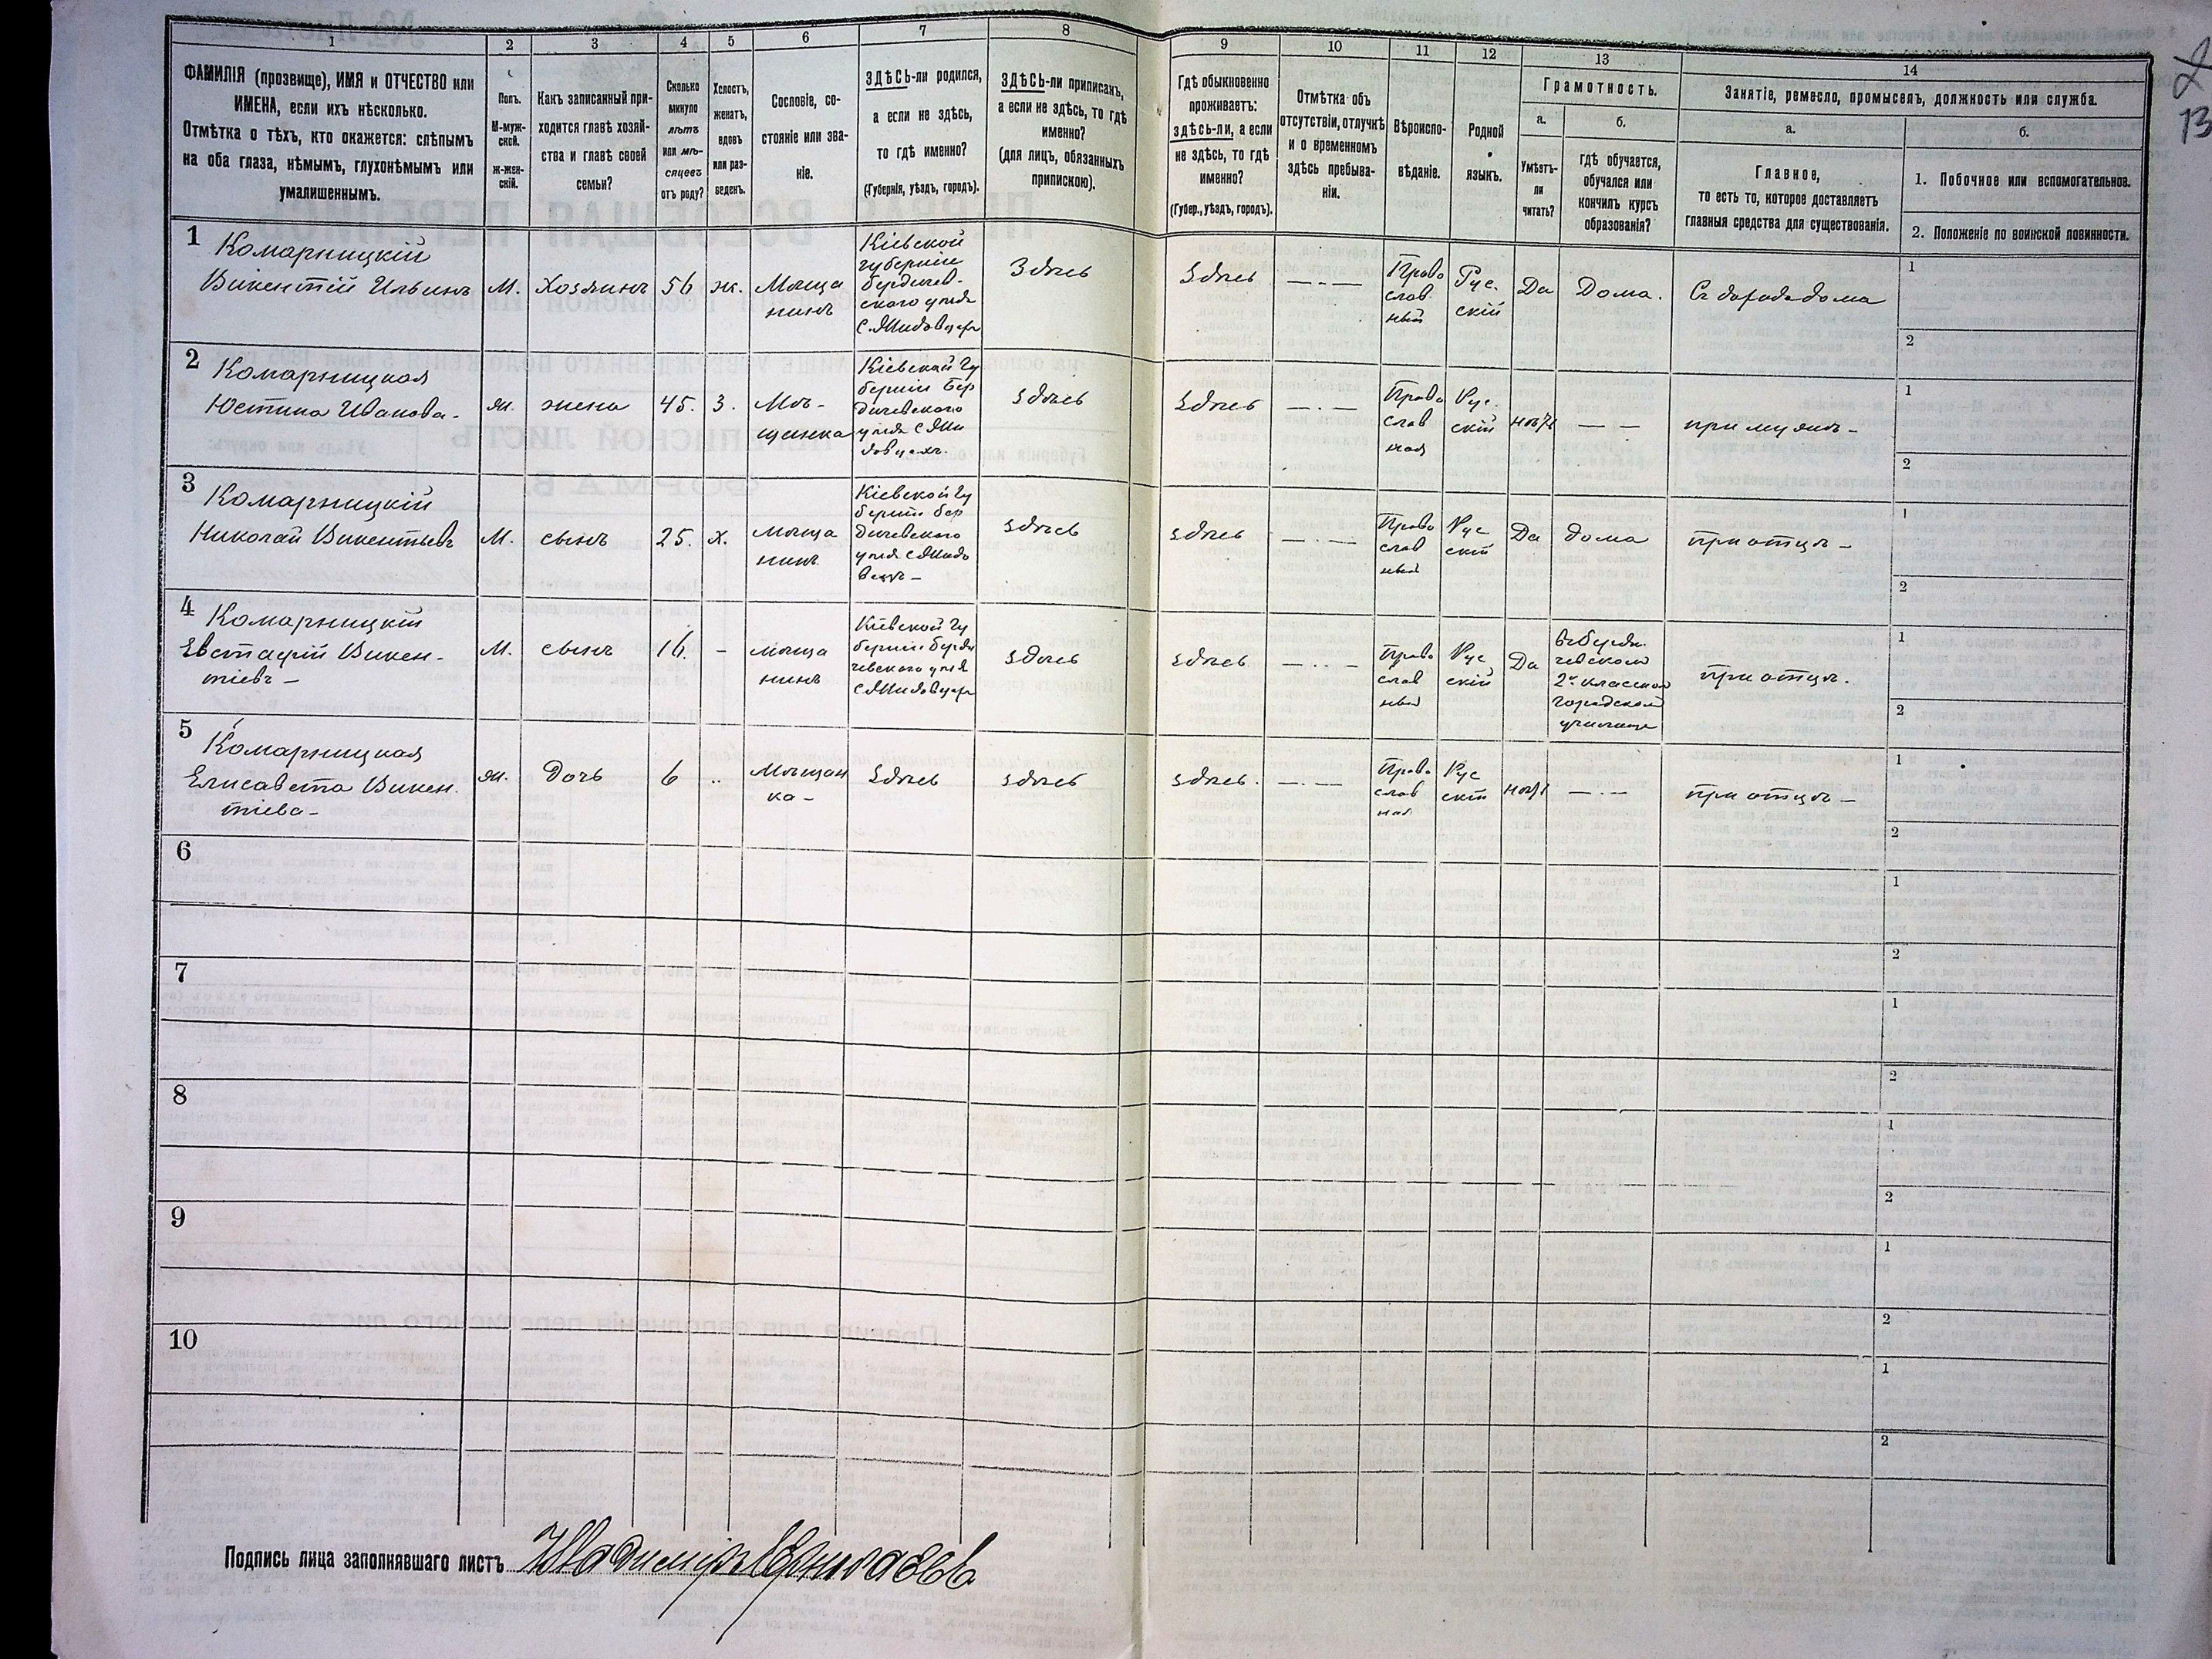 1 2 3 4 5 6 7 8 9 10 11 12 13 14
ФАМИЛІЯ (прозвище), ИМЯ и ОТЧЕСТВО или
ИМЕНА, если ихъ нѣсколько.
Отмѣтка о тѣхъ, кто окажется: слѣпымъ
на оба глаза, нѣмымъ, глухонѣмымъ или
умалишеннымъ.
Полъ.
М-муж-
ской.
ж-жен-
скій.
Какъ записанный при-
ходится главѣ хозяй-
ства и главѣ своей
семьи?
Сколько
минуло
лѣтъ
или мѣ-
сяцевъ
отъ роду?
Холостъ,
женатъ,
вдовъ
или раз-
веденъ.
Сословіе, со-
стояніе или зва-
ніе.
ЗДѢСЬ-ли родился,
а если не здѣсь,
то гдѣ именно?
(Губернія, уѣздъ, городъ).
ЗДѢСЬ-ли приписанъ,
а если не здѣсь, то гдѣ
именно?
(для лицъ, обязанныхъ
припискою).
Гдѣ обыкновенно
проживаетъ:
здѣсь-ли, а если
не здѣсь, то гдѣ
именно?
(Губер., уѣздъ, городъ).
Отмѣтка объ
отсутствіи, отлучкѣ
и о временномъ
здѣсь пребыва-
ніи.
Вѣроиспо-
вѣданіе.
Родной
языкъ.
Грамотность.
а.
Умѣетъ-
ли
читать?
б.
гдѣ обучается,
обучался или
кончилъ курсъ
образованія?
Занятіе, ремесло, промыселъ, должность или служба.
а.
Главное,
то есть то, которое доставляетъ
главныя средства для существованія.
б.
1. Побочное или вспомогательное.
2. Положеніе по воинской повинности.
1 Комарницкій
Викентій Ильинъ
М.
Хозяинъ
56
ж.
Мѣща
нинъ
Кіевской
губерніи
бердичев-
ского уѣзда
Здѣсь
Здѣсь
—.—
Право
слав.
ный
Рус.
скій
Да
Дома.
1
2
2 Комарницкая
Юстина Иванова-
ж.
жена
45.
З.
Мѣ-
щанка
Кіевской Гу
берніи Бер
дичевского
здѣсь
Здѣсь
—.—
Право
слав
ная
Рус.
скій
нѣтъ
— —
при мужѣ-
1
2
3 Комарницкій
Николай Викентьевъ
М.
сынъ
25.
х.
мѣща
нинъ
Кіевской Гу
берніи бер
дичевского
здѣсь
здѣсь
—.—
Право
слав
ный
Рус
скій
Да
дома
при отцѣ-
1
2
4 Комарницкій
Евстафій Викен-
тіевъ-
М.
сынъ
16
-
мѣща
нинъ
Кіевской Гу
берніи берди
чевского уѣзда
здѣсь
здѣсь
—..—
Право
слав
ный
Рус
скій
Да
въ Берди
чевскомъ
2х классномъ
городскомъ
училище
при отцѣ.
1
2
5 Комарницкая
Елисавета Викен
тіева-
ж.
Дочь
6
..
Мѣщан
ка-
Здѣсь
здѣсь
здѣсь.
—.—
Право
слав
ная
Рус
скій
нѣтъ
—.—
при отцѣ-
1
2
6
1
2
7
1
2
8
1
2
9
1
2
10
1
2
Подпись лица заполнявшаго листъ
13